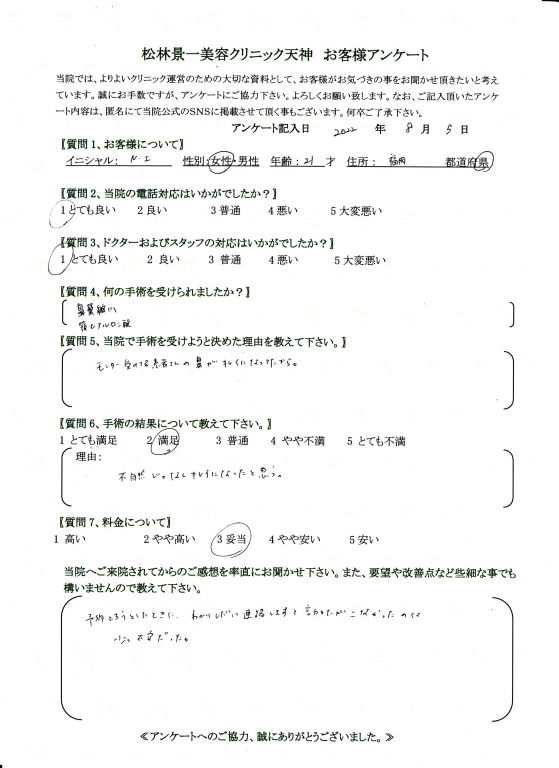 松林景一美容クリニック天神 お客様アンケート
当院では、よりよいクリニック運営のための大切な資料として、お客様がお気づきの事をお聞かせ頂きたいと考え
ています。誠にお手数ですが、アンケートにご協力下さい。よろしくお願い致します。なお、ご記入頂いたアンケ
ート内容は、匿名にて当院公式のSNSに掲載させて頂く事もございます。何卒ご了承下さい。
アンケート記入日 2022 年 8 月 5 日
〖質問1、お客様について〗
イニシャル: N.I 性別:女性・男性 年齢:21 才 住所: 福岡 都道府県
〖質問2、当院の電話対応はいかがでしたか?〗
1 とても良い 2 良い 3 普通 4 悪い 5 大変悪い
〖質問3、ドクターおよびスタッフの対応はいかがでしたか?〗
1 とても良い 2 良い 3 普通 4 悪い 5 大変悪い
〖質問4、何の手術を受けられましたか?〗
鼻翼縮小
顎ヒアルロン酸
〖質問5、当院で手術を受けようと決めた理由を教えて下さい。〗
モニター受けてる患者さんの鼻がキレイになってたから。
〖質問6、手術の結果について教えて下さい。〗
1 とても満足 2 満足 3 普通 4 やや不満 5 とても不満
理由:
不自然じゃなくキレイになったと思う。
〖質問7、料金について〗
1 高い 2 やや高い 3 妥当 4 やや安い 5 安い
当院へご来院されてからのご感想を率直にお聞かせ下さい。また、要望や改善点など些細な事でも
構いませんので教えて下さい。
予約とろうとしたときに、わかりしだい連絡しますと言われたがこなかったのは
少し不安だった。
≪アンケートへのご協力、誠にありがとうございました。≫